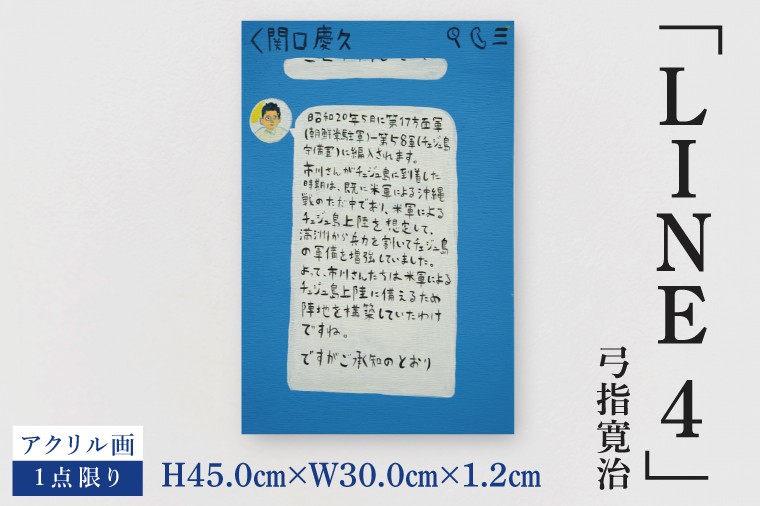 「LINE 4」
弓指寛治
く関口慶久
昭和20年5月に第17方面軍
(朝鮮楽駐軍)-第58軍(チェジュ島
守備軍)に編入されます。
市川さんがチェジュ島に到着した
時期は、既に米軍による沖縄
戦のただ中であり、米軍による
チェジュ島上陸を想定して、
満洲から兵力を割いてチェジュ島
の軍備を増強していました。
よって、市川さんたちは米軍による
チェジュ島上陸に備えるため
陣地を構築していたわけ
ですね。
ですがご承知のとおり
アクリル画
1点限り
H45.0cm×W30.0cm×1.2cm